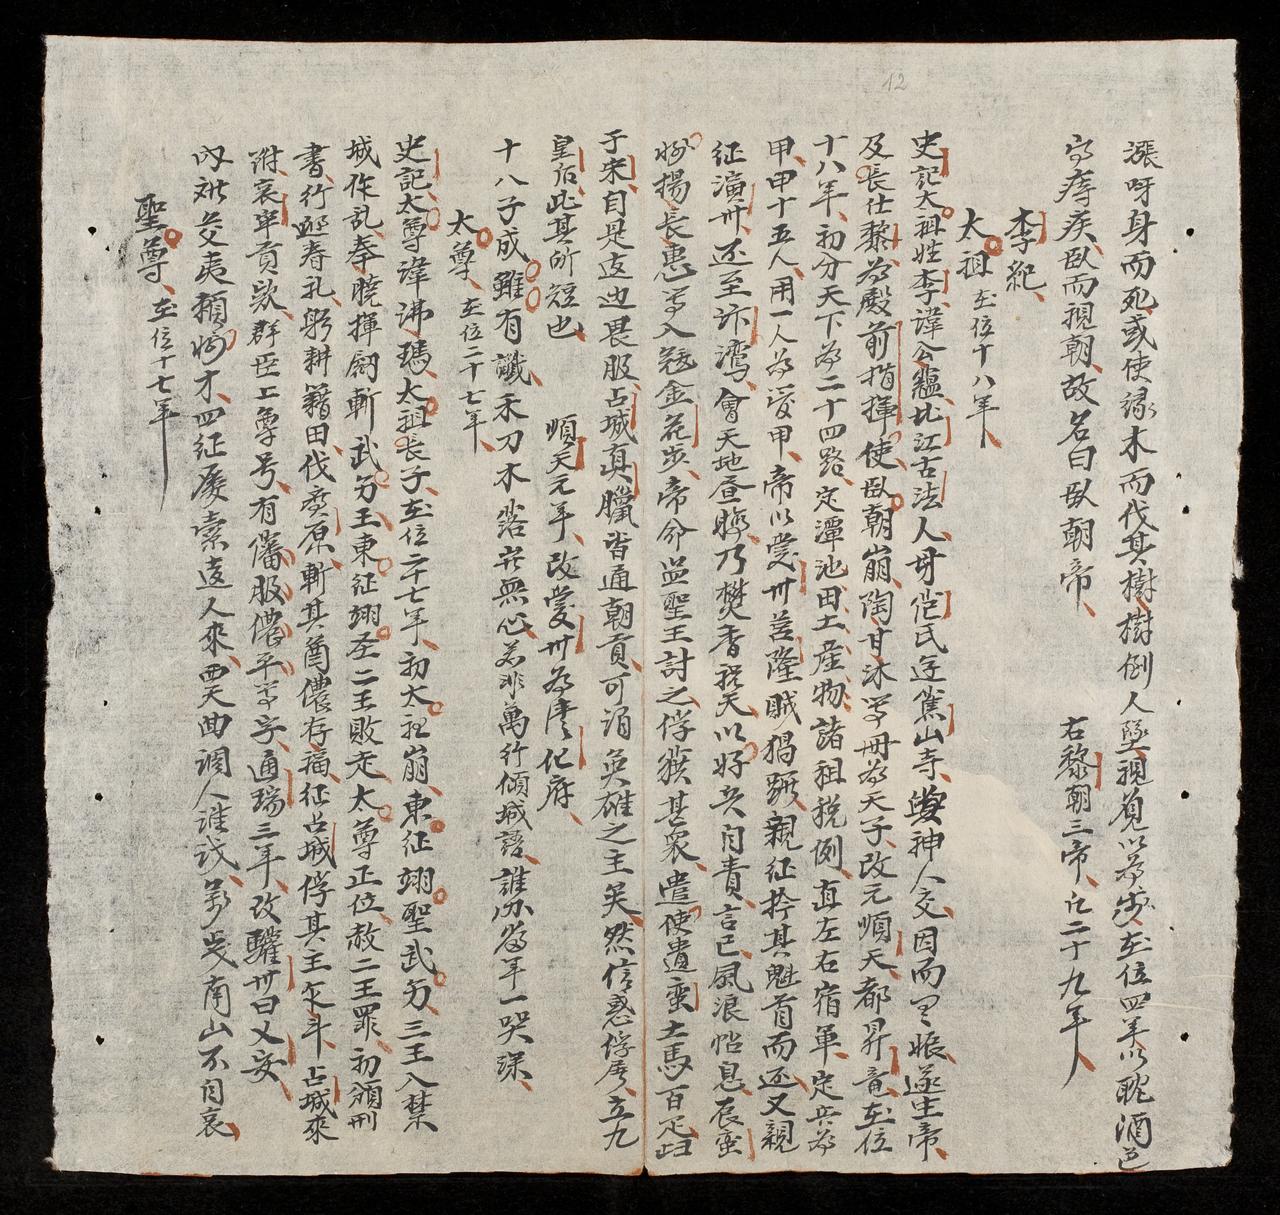 漲呀身而死或使緣木而伐其樹樹倒人墜視覓以為步在位四年以耽酒色
宀痔疾臥而視朝故名曰臥朝帝 右黎朝三帝共二十九年
李紀
太祖 在位十八年
史記太祖姓李諱公蘊北江古法人母范氏遊蕉山寺與神人交因而有娠遂生帝
及長仕黎為殿前指揮使臥朝崩陶甘沐等冊為天子改元順天都昇竜在位
十八年初分天下為二十四路定潭池田土産物諸祖稅例直左右宿軍定兵為
甲甲十五人用一人為爱甲帝以愛卅莒隆賊猖獗親征擒其魁首而还又親
征演卅还至汴湾會天地昼暝乃焚香祝天以好兵自責言已風浪帖息辰蛮
將揚長惠等入冦金花步帝命㴓聖王討之俘獲甚衆遣使遺蛮土馬百疋歸
于宋自是迩边畏服占城真臘皆通朝貢可謂英雄之主矣然信惑俘屠立九
皇后此其所短也 順天元年改愛卅為清化府
十八子成雖有讖禾刀木落豈無心若非萬行傾城語誰办当年一哭深
太尊 在位二十七年
史記太尊諱沸瑪太祖長子在位二十七年初太祖崩東征翊聖武㔟三王入禁
城作乱奉曉揮劒斬武㔟王東征翊圣二王敗走太尊正位赦二王罪初頒刑
書行廵春礼躬耕籍田伐廣原斬其酋儂存福征占城俘其主乍斗占城來
附哀牢貢欵群臣上尊号有儋服儂平等字通瑞三年改驩卅曰乂安
內难交夷頼將才四征屢索遠人來西天曲調人誰識萬歲南山不自哀
聖尊 在位十七年
12